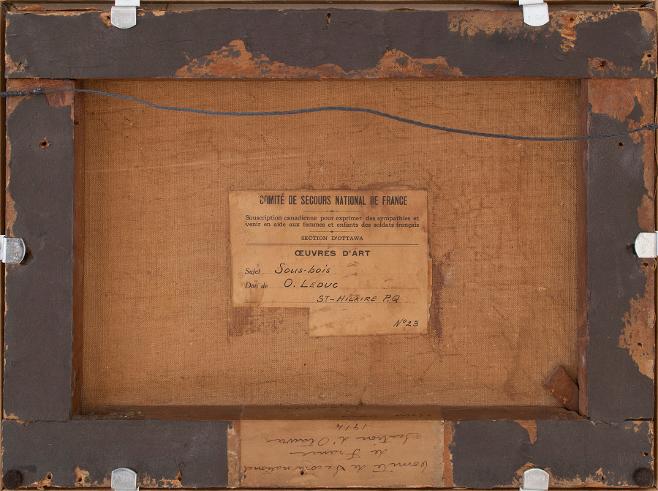 COMITÉ DE SECOURS NATIONAL DE FRANCE
Souscription canadienne pour exprimer des sympathies et
venir en aide aux femmes et enfants des soldats français
SECTION D'OTTAWA
ŒUVRES D'ART
Sujet Sous-bois
Don de O. Leduc
ST-HILAIRE P.Q
Nº 23
Comité de Secours national
de France
Section d'Ottawa
1914